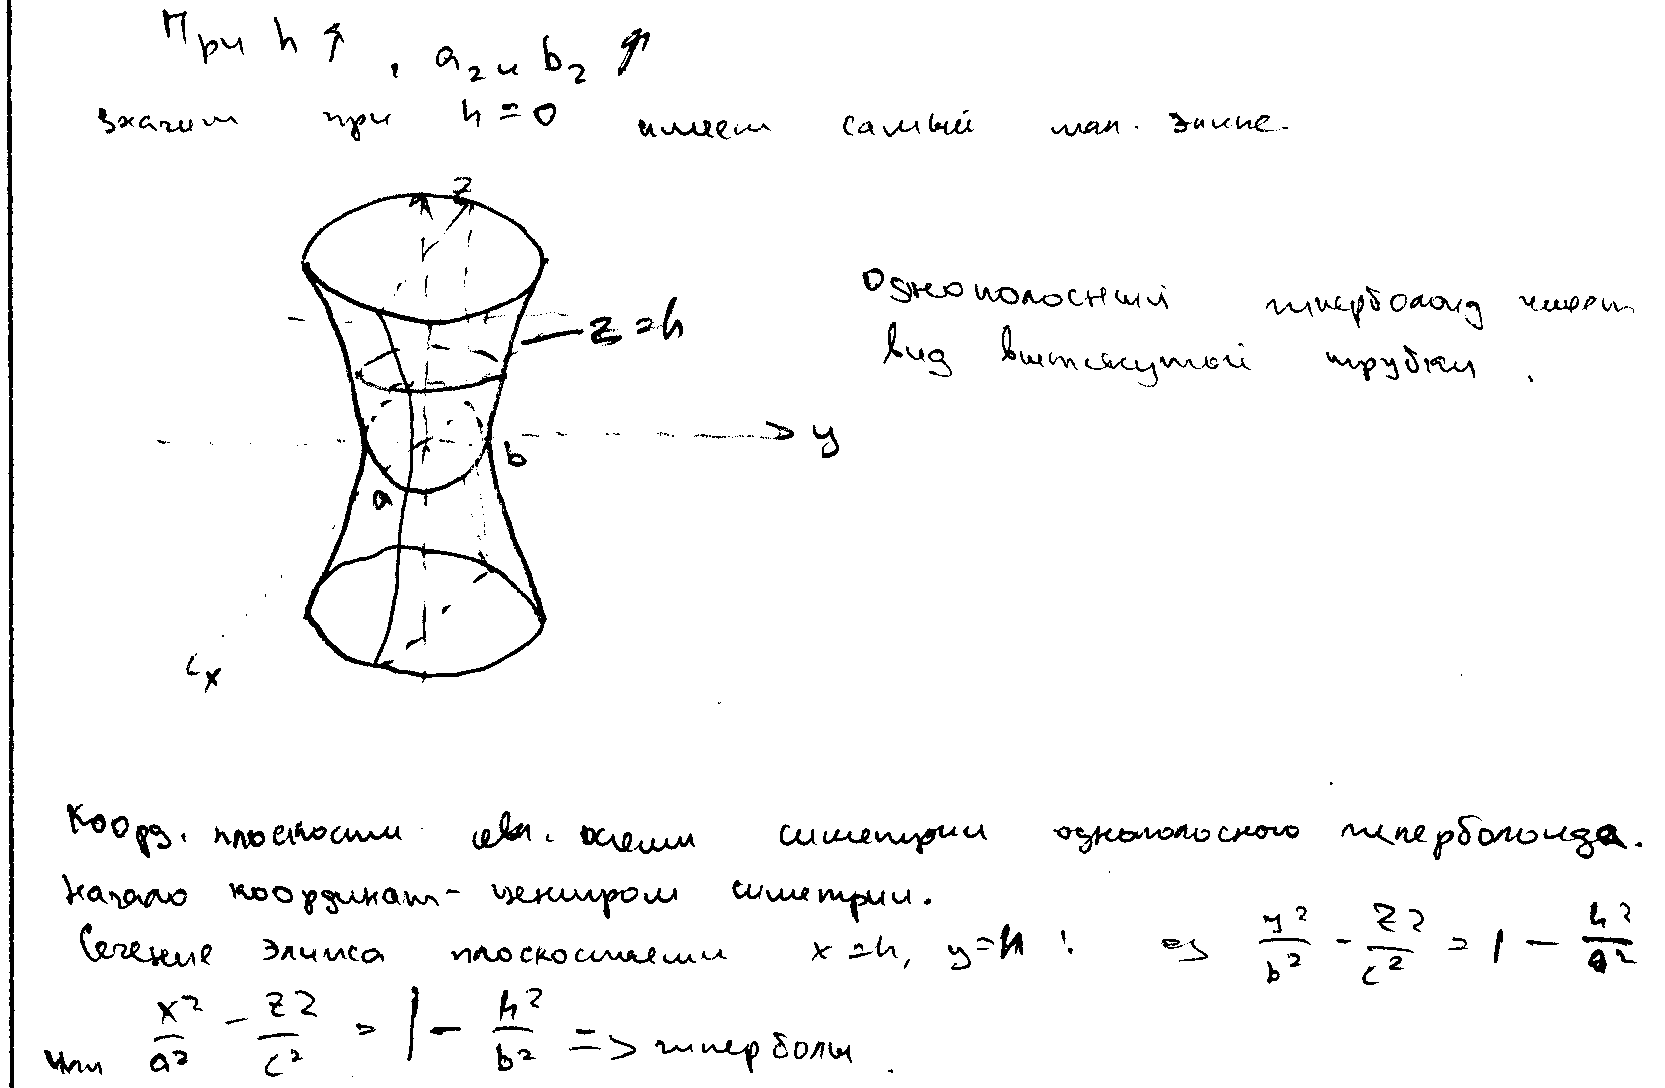 При h ↑, a₂ и b₂ ↑
значит при h = 0 имеем самый мал. элипс.
z
z = h
Однополосный гиперболоид имеет
вид вытянутой трубки.
y
b
a
x
Коорд. плоскости явл. осями симетрии однополосного гиперболоида.
Начало координат - центром симетрии.
Сечение элипса плоскостями x = h, y = h : y²/b² - z²/c² = 1 - h²/a²
или x²/a² - z²/c² = 1 - h²/b² => гиперболы.